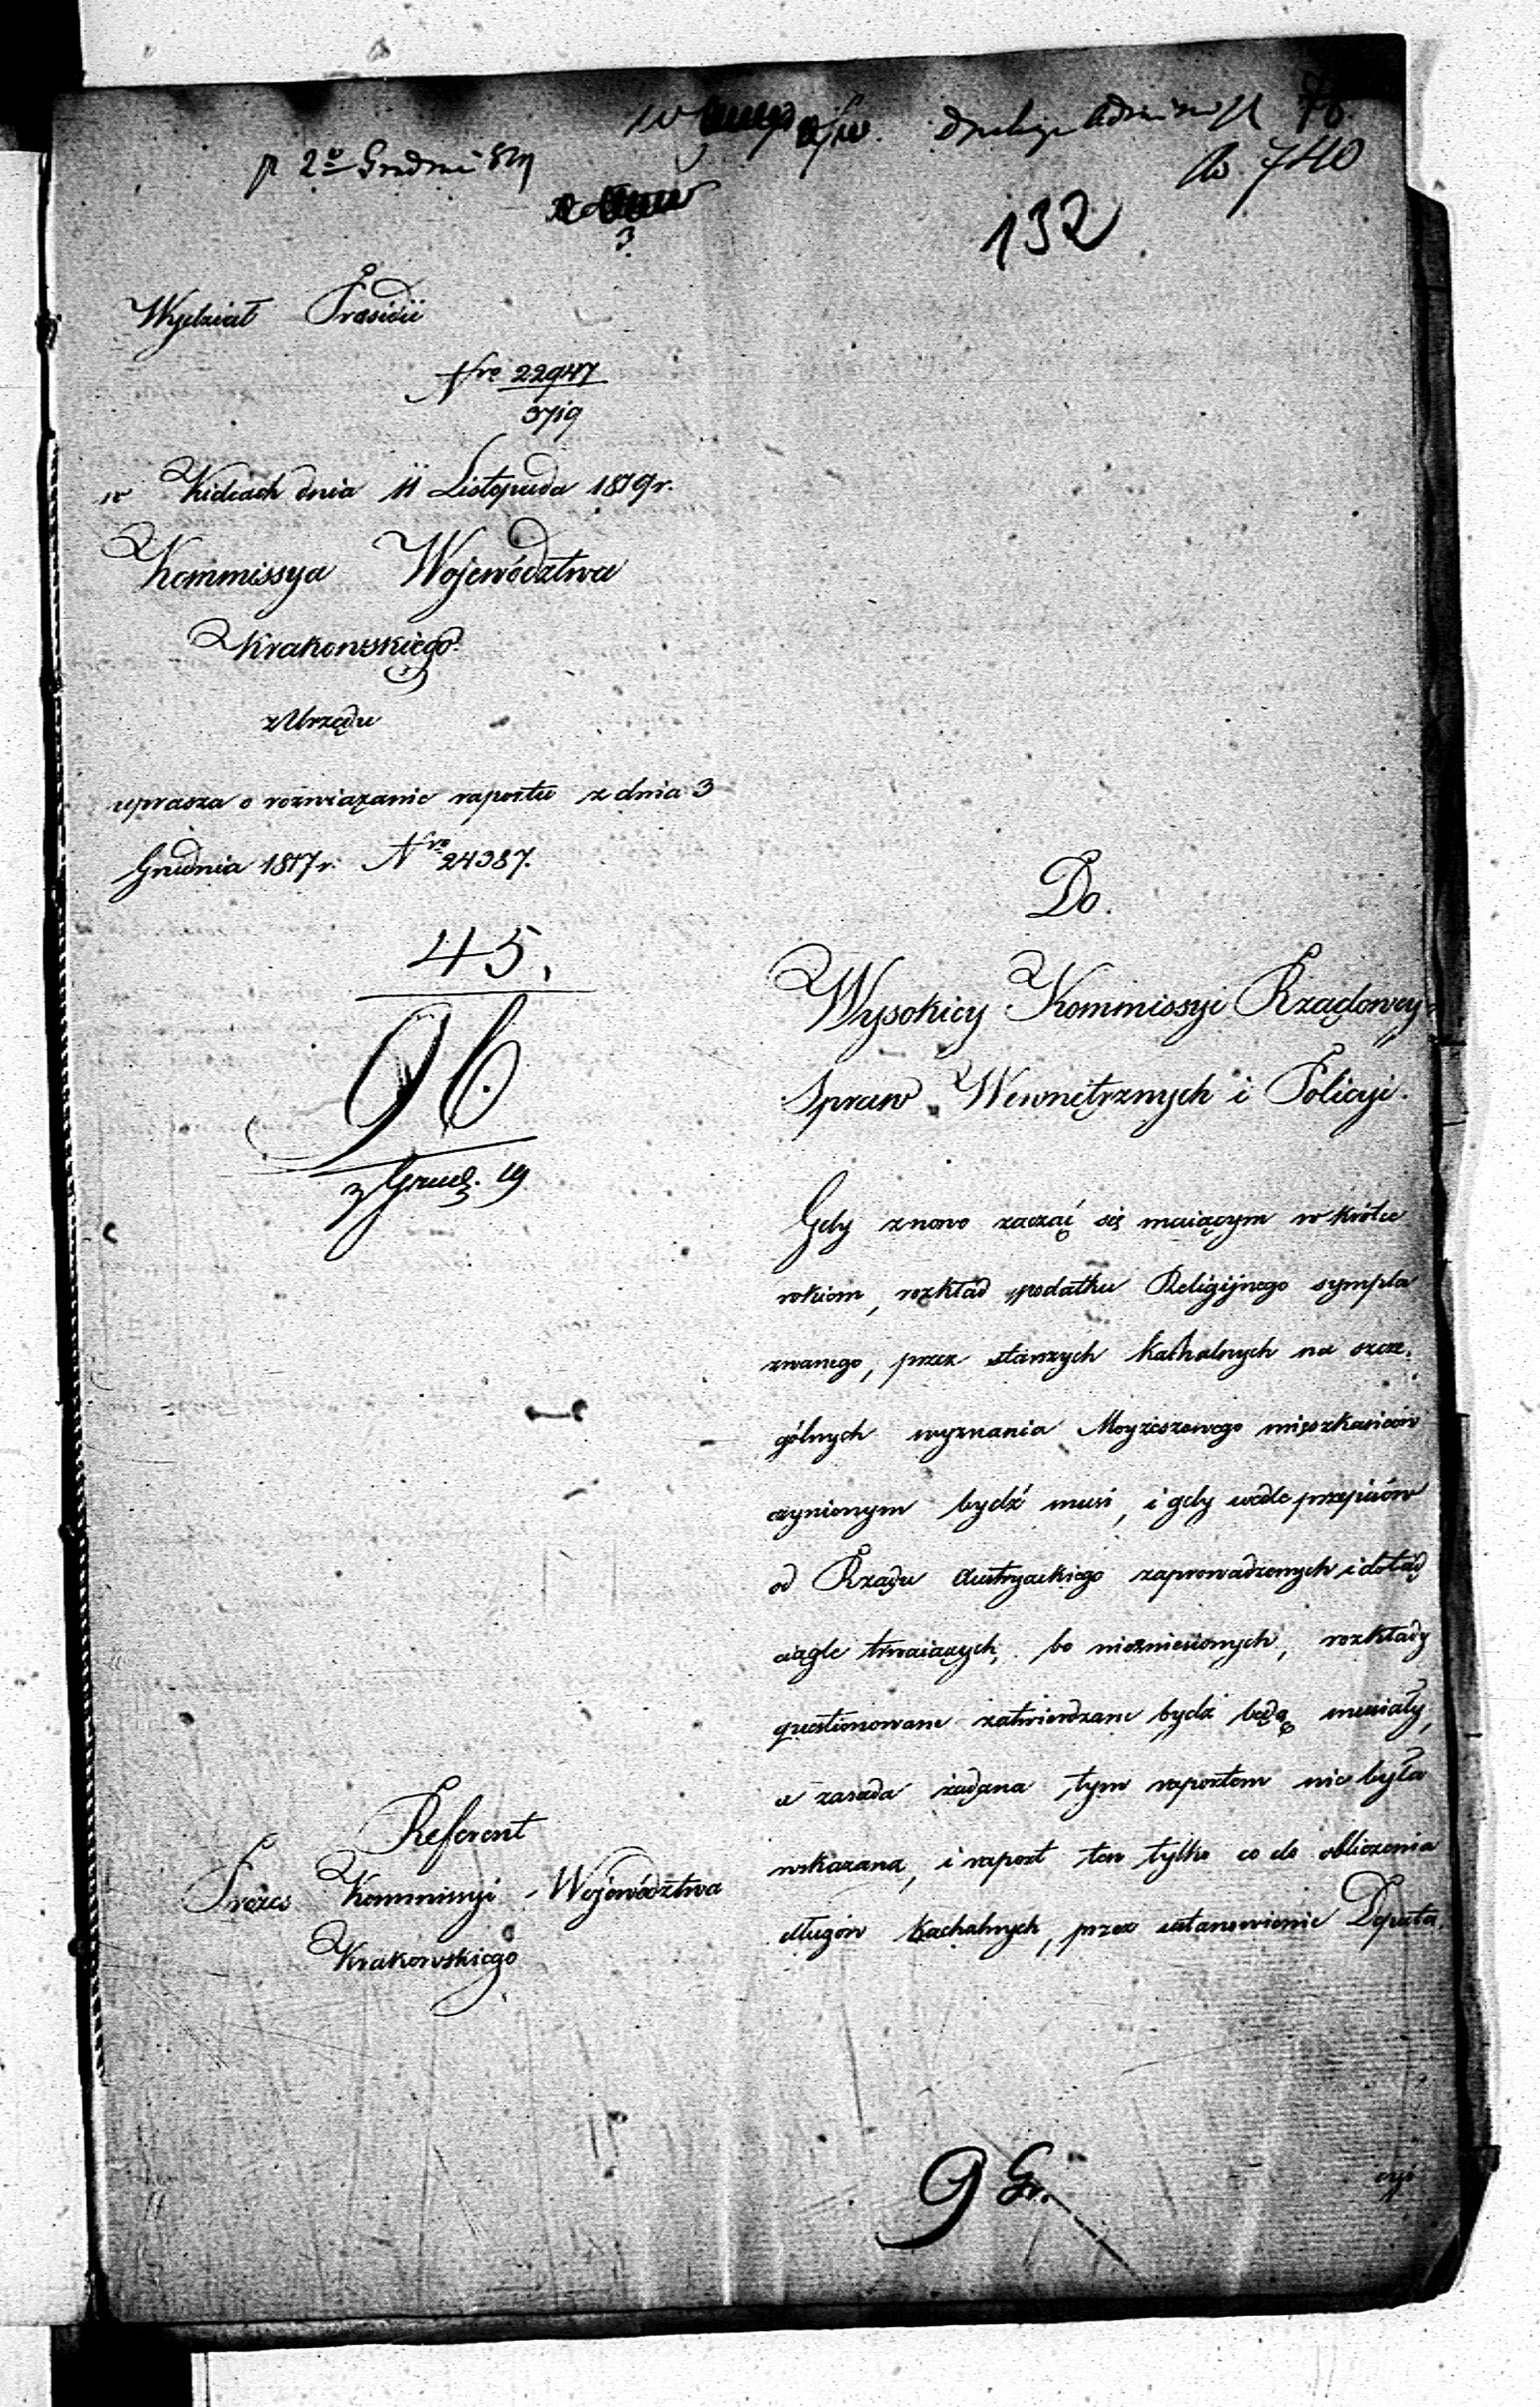 76.
No. 740
p 2º Grudnia 819
132
3.
Wydział Prasidii
Nro 22947
3719
w Kielcach dnia 11 Listopada 1819 r.
Kommissya Województwa
Krakowskiego
z Urzędu
uprasza o rozwiązanie raportu z dnia 3
Grudnia 1817 r. Nro 24387.
45.
96
3 Grud. 19
Referent
Prezes Kommissyi Województwa
Krakowskiego
Do.
Wysokiey Kommissyi Rządowey
Spraw Wewnętrznych i Policyi.
Gdy znowo zacząć się maiącym w krótce
rokiem, rozkład podatku Religijnego sympla
zwanego, przez starszych Kachalnych na szcze-
gólnych wyznania Moyżeszowego mieszkańców
czynionym bydź musi, i gdy wedle przepisów
od Rządu Austryackiego zaprowadzonych i dotąd
ciągle trwaiących, bo niezniesionych, rozkłady
questionowane zatwierdzane bydź będą musiały,
a zasada żadana tym raportem nie była
wskazana, i raport ten tylko co do obliczenia
długów Kachalnych, przez ustanowienie Deputa-
cyi
9 Gr.